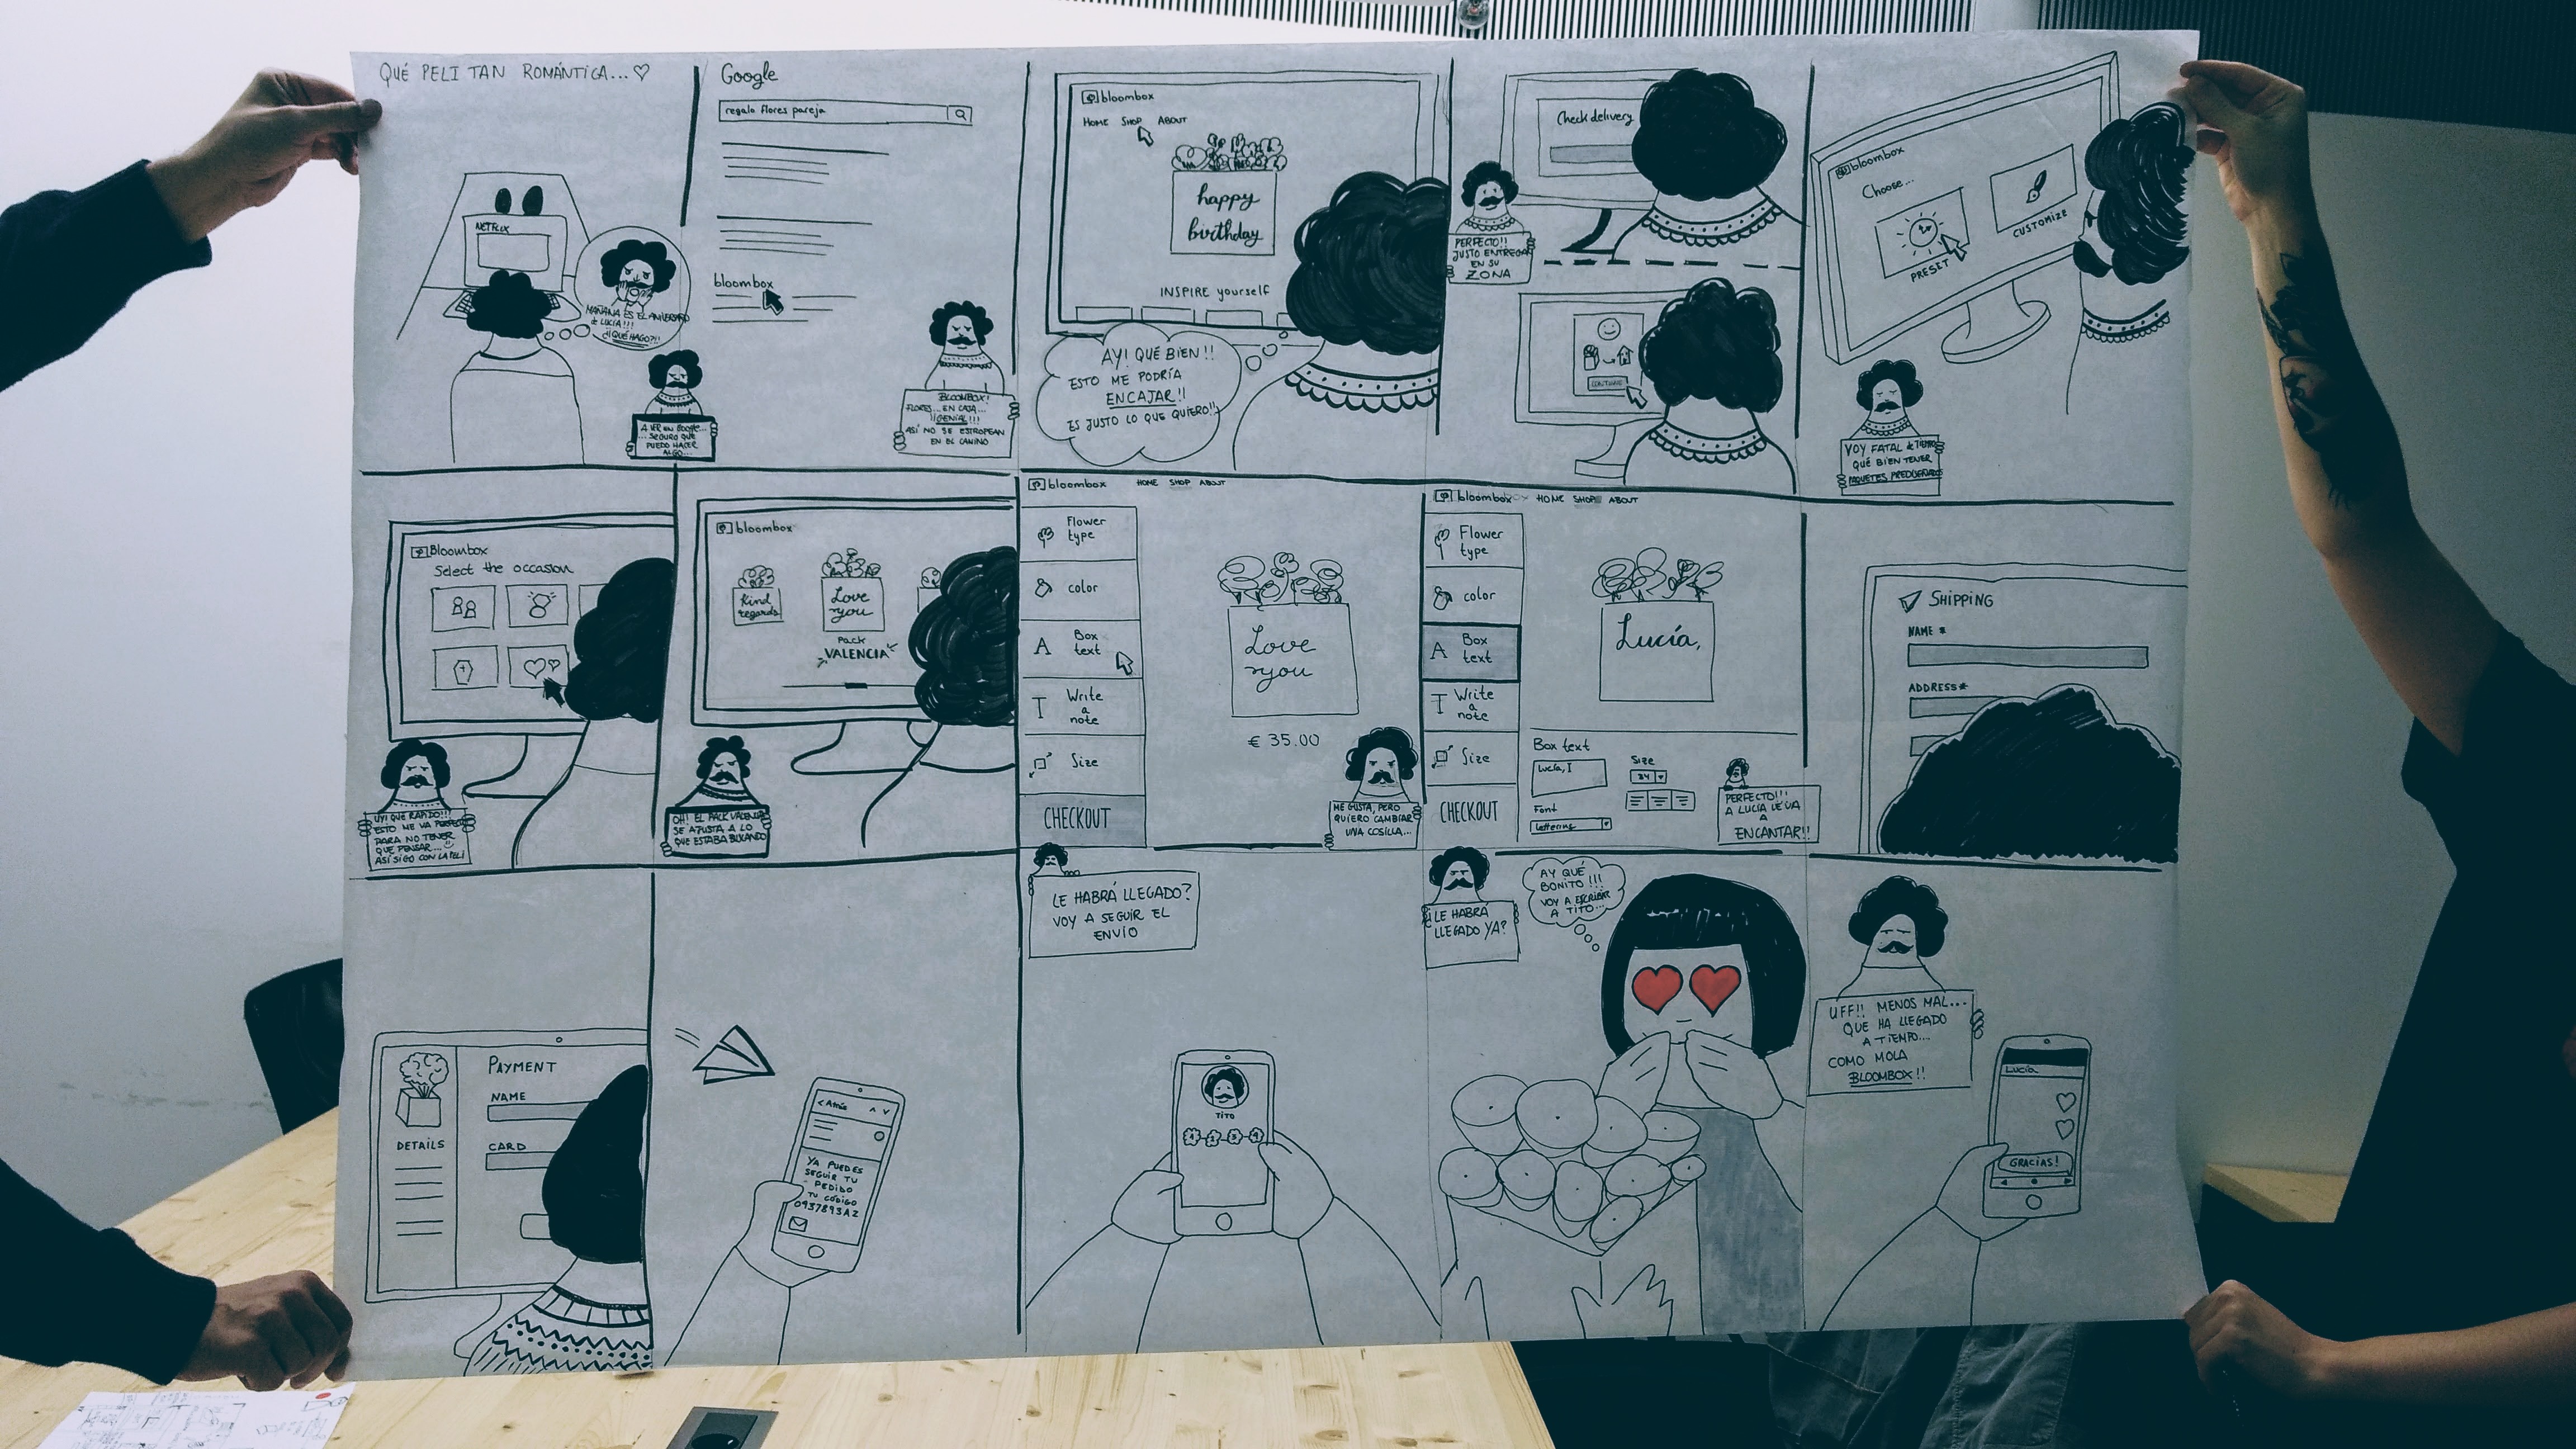 QUÉ PELI TAN ROMÁNTICA...
NETFLIX
MAÑANA ES EL ANIVERSARIO
de LUCÍA!!!
¡¿QUÉ HAGO?!!
A VER EN GOOGLE...
...SEGURO QUE
PUEDO HACER
ALGO...
Google
regalo flores pareja
bloombox
BLOOMBOX!
FLORES... EN CAJA...
¡¡GENIAL!!!
ASÍ NO SE ESTROPEAN
EN EL CAMINO
bloombox
HOME SHOP ABOUT
happy
birthday
INSPIRE yourself
AY! QUÉ BIEN!!
ESTO ME PODRÍA
ENCAJAR!!
ES JUSTO LO QUE QUIERO!!
Check delivery
PERFECTO!!
JUSTO ENTREGAN
EN SU
ZONA
CONTINUE
bloombox
Choose...
PRESET
CUSTOMIZE
VOY FATAL de TIEMPO
QUÉ BIEN TENER
PAQUETES PREDISEÑADOS
Bloombox
Select the occasion
UY! QUE RÁPIDO!!!
ESTO ME VA PERFECTO
PARA NO TENER
QUE PENSAR...
ASÍ SIGO CON LA PELI
bloombox
Kind
regards
Love
you
PACK
VALENCIA
OH! EL PACK VALENCIA
SE AJUSTA A LO
QUE ESTABA BUSCANDO
bloombox HOME SHOP ABOUT
Flower
type
color
Box
text
Write
a
note
Size
CHECKOUT
Love
you
€ 35.00
ME GUSTA, PERO
QUIERO CAMBIAR
UNA COSILLA...
bloombox HOME SHOP ABOUT
Flower
type
color
Box
text
Write
a
note
Size
CHECKOUT
Lucía,
Box text
Lucía, I
Size
34
Font
lettering
PERFECTO!!!
A LUCÍA LE VA
A
ENCANTAR!!
SHIPPING
NAME *
ADDRESS *
PAYMENT
NAME
CARD
DETAILS
< Atrás
YA PUEDES
SEGUIR TU
PEDIDO
TU CÓDIGO
0937893AZ
LE HABRÁ LLEGADO?
VOY A SEGUIR EL
ENVÍO
TITO
1 2 3 4
¿LE HABRÁ
LLEGADO YA?
AY QUÉ
BONITO!!!
VOY A ESCRIBIR
A TITO...
UFF!! MENOS MAL...
QUE HA LLEGADO
A TIEMPO...
COMO MOLA
BLOOMBOX!!
Lucía
GRACIAS!